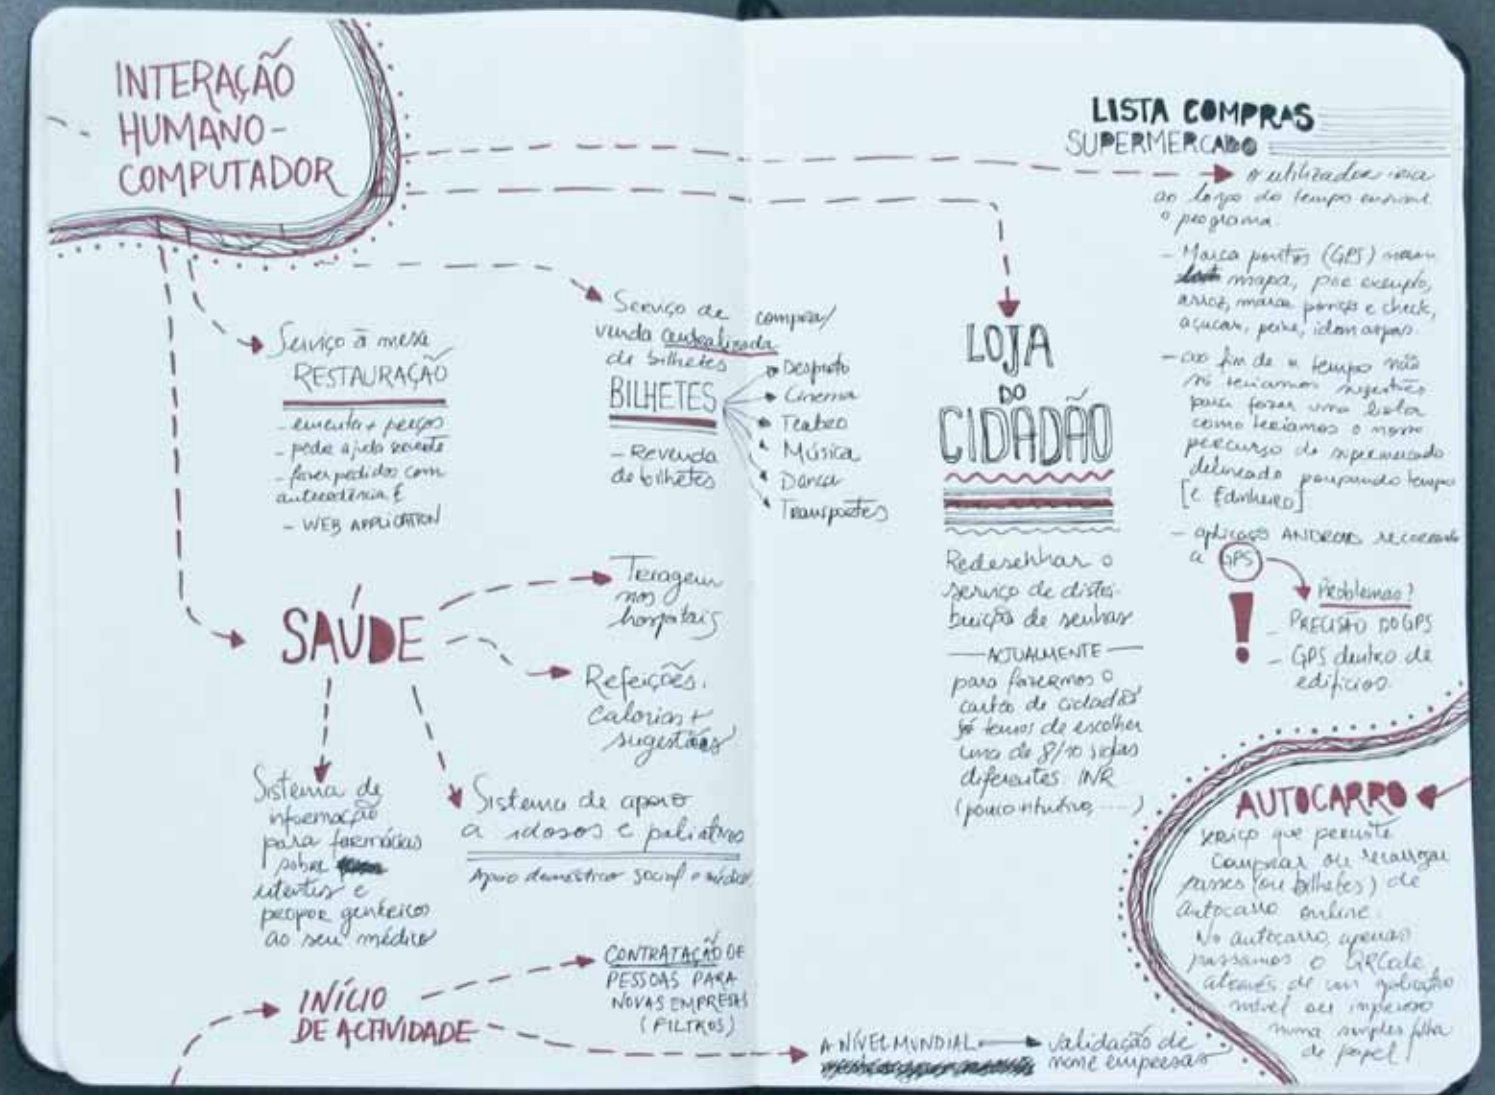 INTERAÇÃO
HUMANO-
COMPUTADOR
Serviço à mesa
RESTAURAÇÃO
- ementa + preços
- pedir ajuda
- fazer pedidos com
antecedência E
- WEB APPLICATION
Serviço de compra/
venda centralizada
de bilhetes
BILHETES
- Revenda
de bilhetes
Desporto
Cinema
Teatro
Música
Dança
Transportes
SAÚDE
Triagem
nos
hospitais
Refeições.
Calorias +
sugestões
Sistema de
informação
para farmácias
sobre
utentes e
propor genéricos
ao seu médico
Sistema de apoio
a idosos e paliativos
Apoio doméstico social e médico
INÍCIO
DE ACTIVIDADE
CONTRATAÇÃO DE
PESSOAS PARA
NOVAS EMPRESAS
(FILTROS)
A NÍVEL MUNDIAL
validação de
nome empresas
LOJA
DO
CIDADÃO
Redesenhar o
serviço de distri-
buição de senhas
ACTUALMENTE
para fazermos o
cartão de cidadão
só temos de escolher
uma de 8/10 siglas
diferentes INR
(pouco intuitivo, ....)
LISTA COMPRAS
SUPERMERCADO
o utilizador iria
ao longo do tempo ensinar
o programa.
- Marca pontos (GPS) num
mapa, por exemplo,
arroz, marca posição e check,
açucar, peixe, idem aspas.
- ao fim de n tempo não
só teriamos sugestões
para fazer uma lista
como teriamos o nosso
percurso do supermercado
delineado poupando tempo
[E dinheiro]
- aplicação ANDROID recorrendo
a GPS
Problemas?
- PRECISÃO DO GPS
- GPS dentro de
edifícios.
AUTOCARRO
serviço que permite
comprar ou recarregar
passes (ou bilhetes) de
autocarro online.
No autocarro, apenas
passamos o QRCode
através de um aplicativo
móvel ou impresso
numa simples folha
de papel!